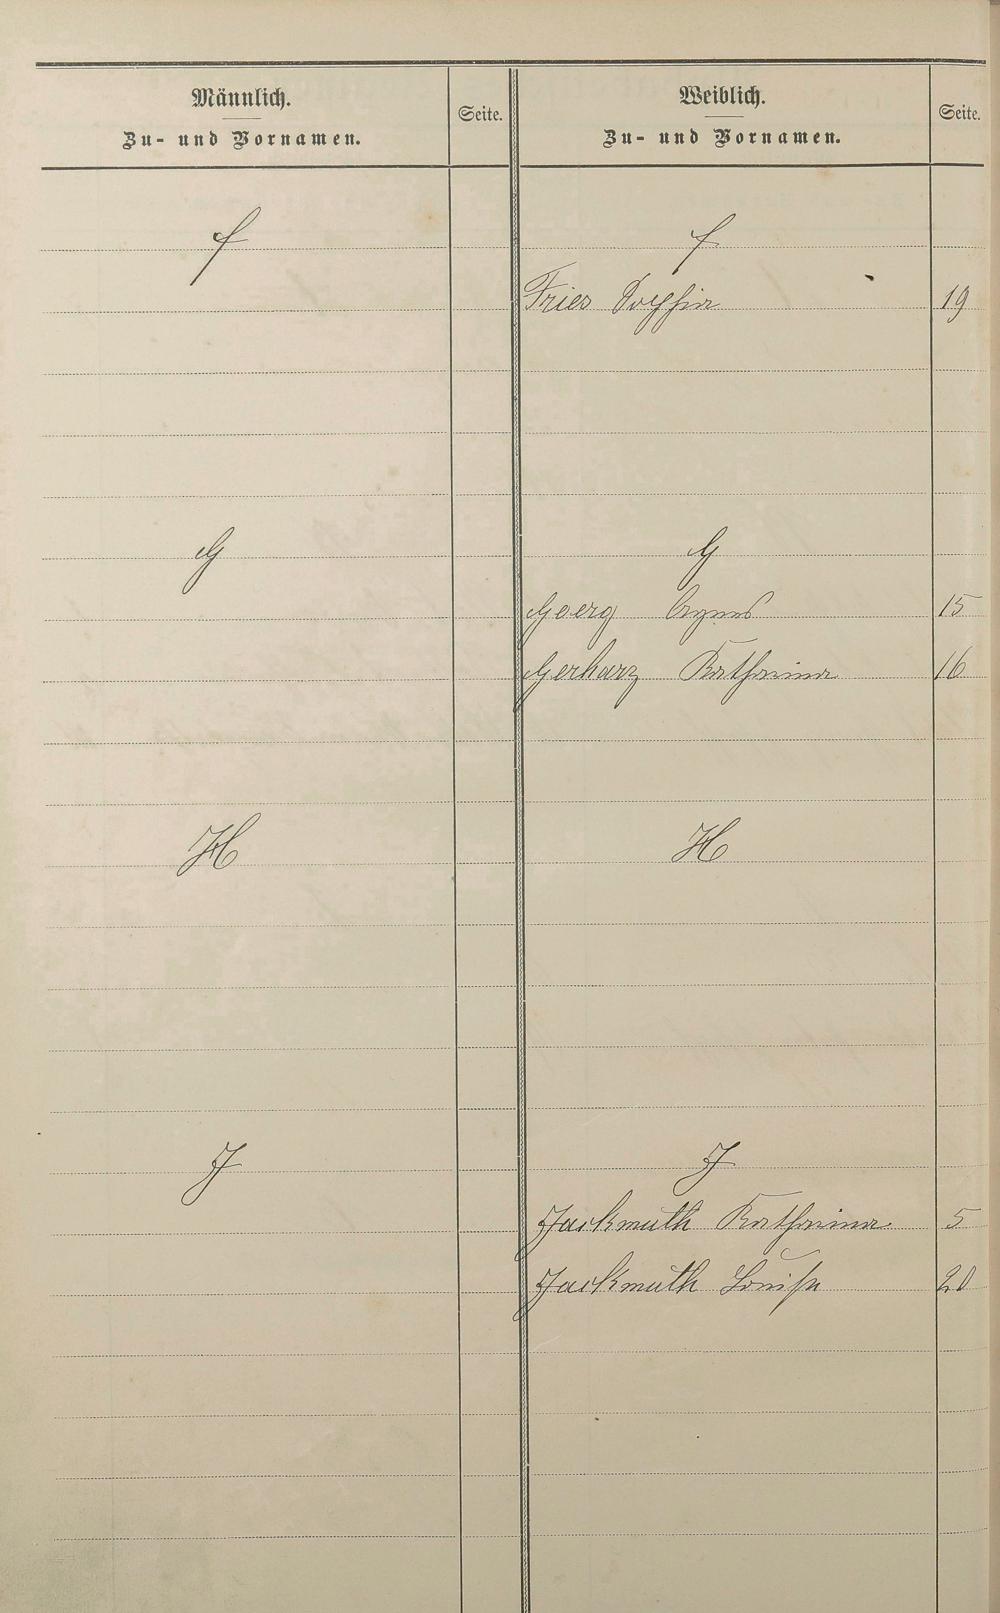 Männlich.
Zu- und Vornamen.
Seite.
Weiblich.
Zu- und Vornamen.
Seite.
F
F
Fries Sophia 19
G
G
Goerg Agnes 15
Gerharz Katharina 16
H
H
J
J
Jackmuth Katharina 5
Jackmuth Louise 20